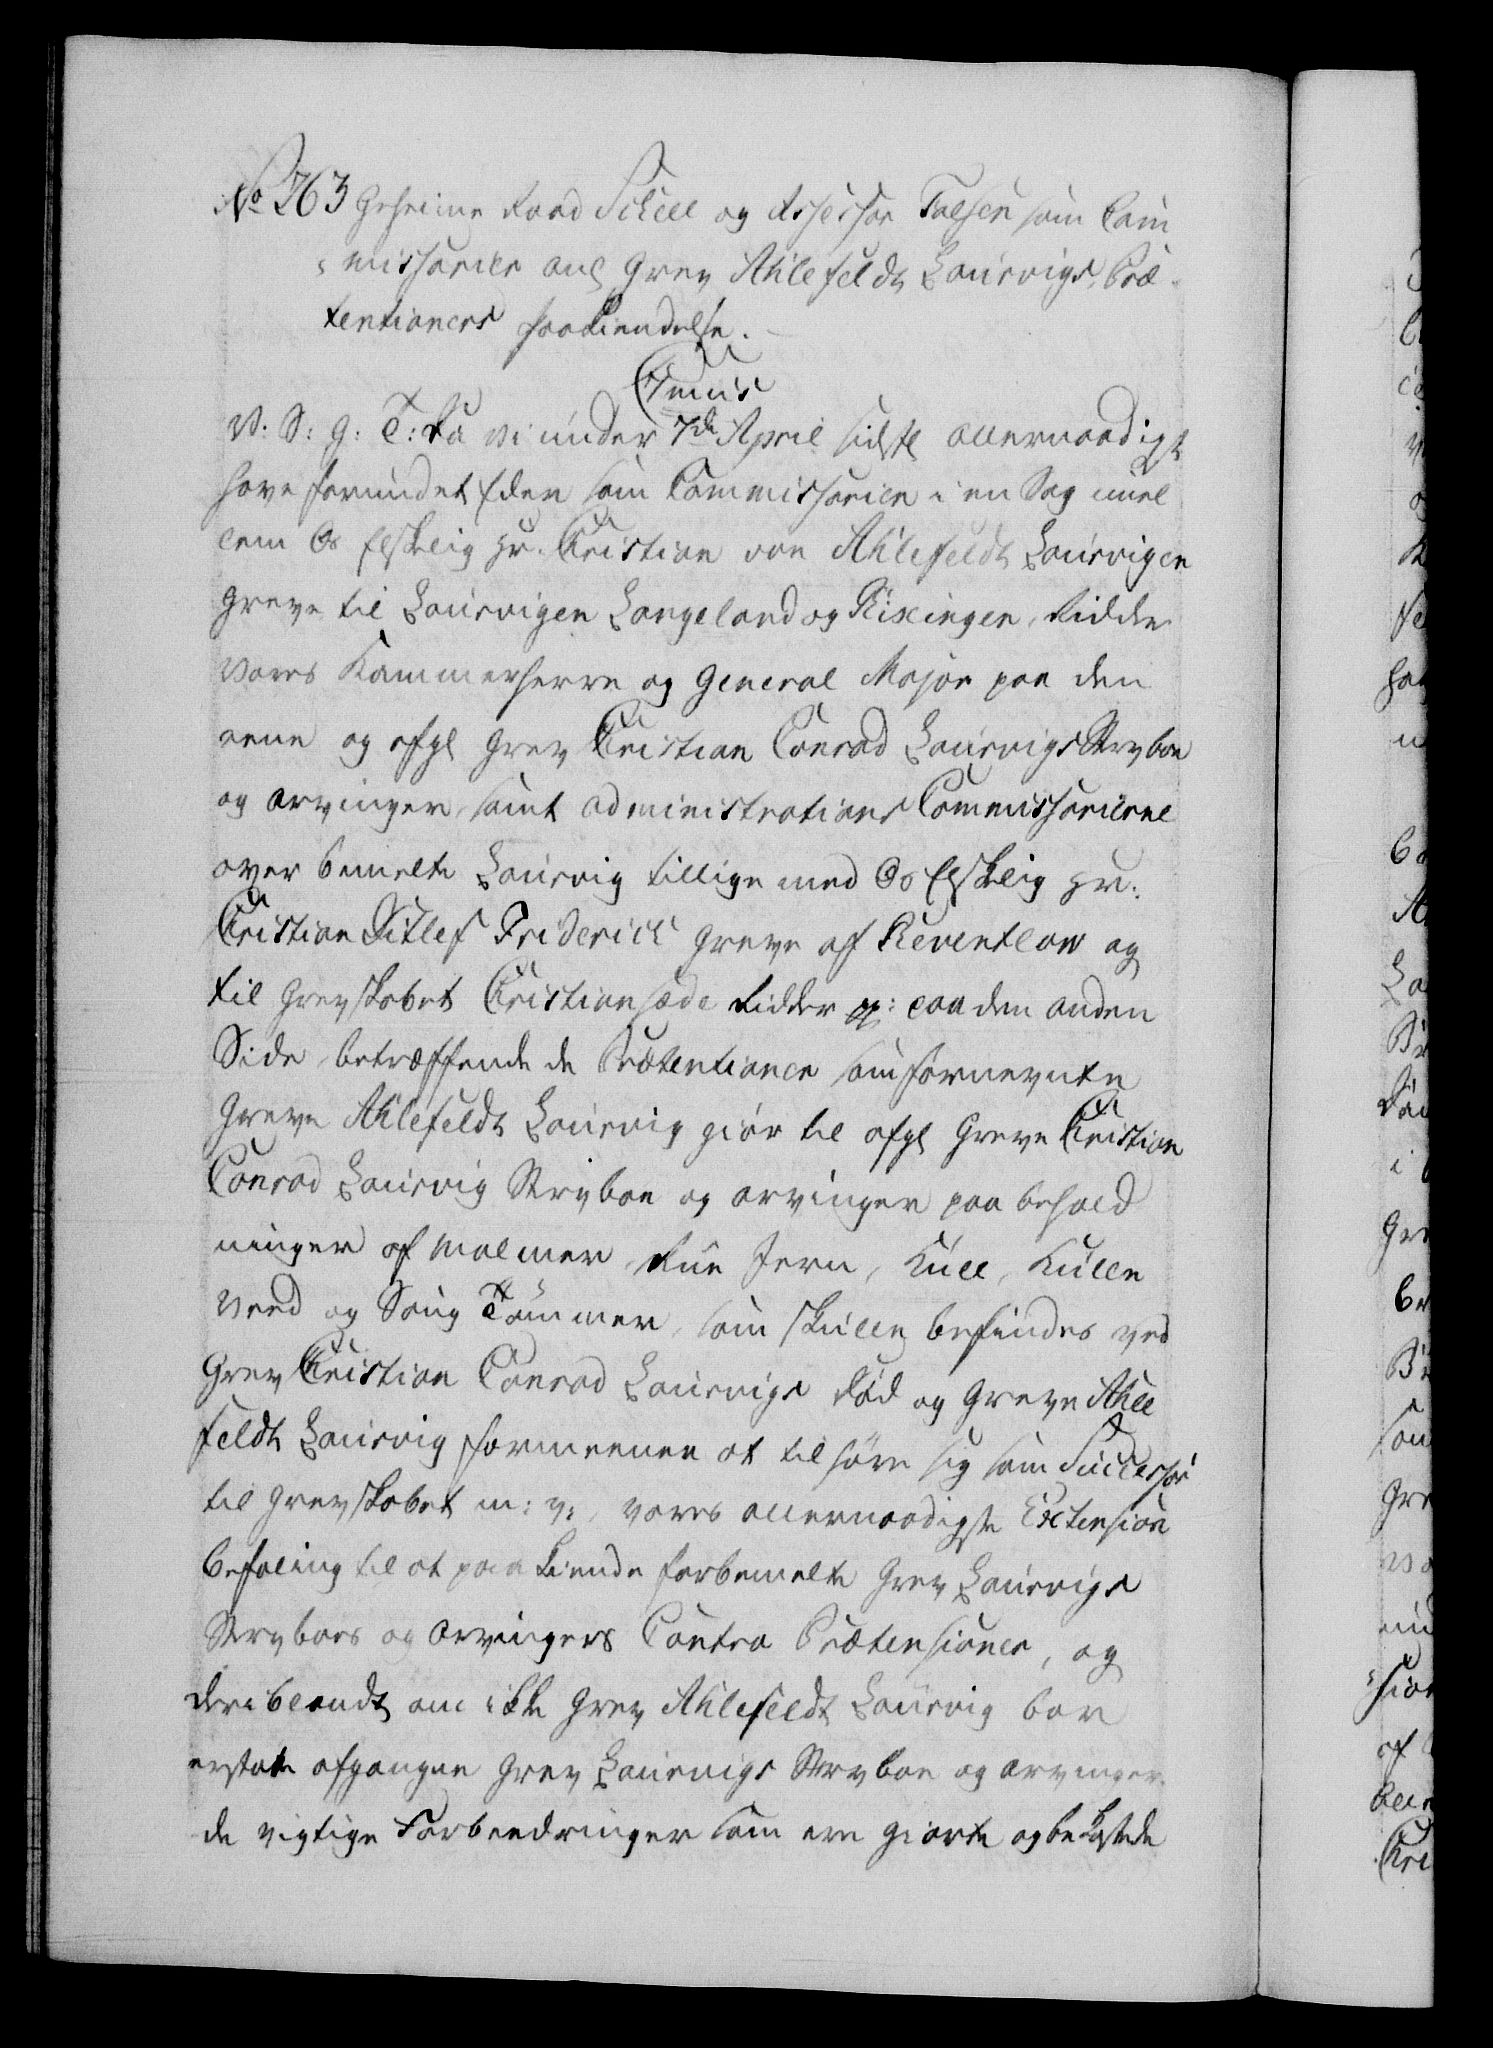 No 763 Geheime Raad Schell og Assessor Falsen som Com
missarier anl Grev Ahlefeldt Laurvigs Præ
tentioners paakiendelse.
C 7mus
V: S: G: T: Da vi under 7de April sidstl allernaadigst
have forundet Eder som Commissarier i en Sag mel
lem Os Elskelig Hr. Christian von Ahlefeldt Laurvigen
Greve til Laurvigen Langeland og Rixingen, Ridder
vores Kammerherre og General Major paa den
eene og afgl Grev Christian Conrad Laurvigs Stervboe
og arvinger, samt administrations Commissarierne
over bemelte Laurvig tillige med Os Elskelig Hr:
Christian Ditlef Friderich Greve af Reventlow og
til Grevskabet Christiansæde Ridder pp: paa den anden
Side, betræffende de Prætentioner som fornevnte
Greve Ahlefeldt Laurvig giør til afgl Greve Christian
Conrad Laurvig Stervboe og arvinger paa behold
ninger af Malmer, Rue Jern, Kull, Kulle
veed og Saug Tømmer, som skulle befindes ved
Grev Christian Conrad Laurvigs Død og Greve Ahle
feldt Laurvig formeener at tilhøre sig som Successor
til Grevskabet m: v:, vores allernaadigste Extension
befaling til at paakiende forbemelte Grev Laurvigs
Stervboes og Arvingers Contra Prætensioner, og
deriblandt om ikke Grev Ahlefeldt Laurvig bør
erstatte afgangne Grev Laurvigs Stervboe og arvinger
de vigtige Forbeedringer som ere giorte og bekostede